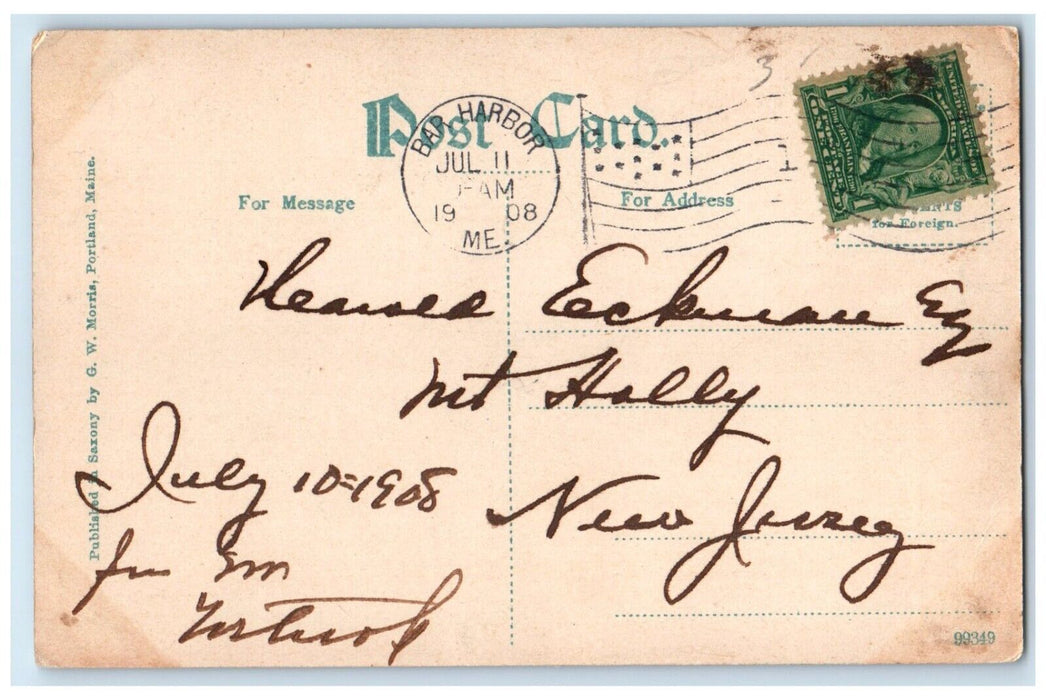 Post Card.
BAR HARBOR
JUL 11
AM
19 08
ME.
For Message
For Address
for Foreign.
Eckman Esq
Mt Holly
New Jersey
July 10=1908
Published in Saxony by G. W. Morris, Portland, Maine.
99349